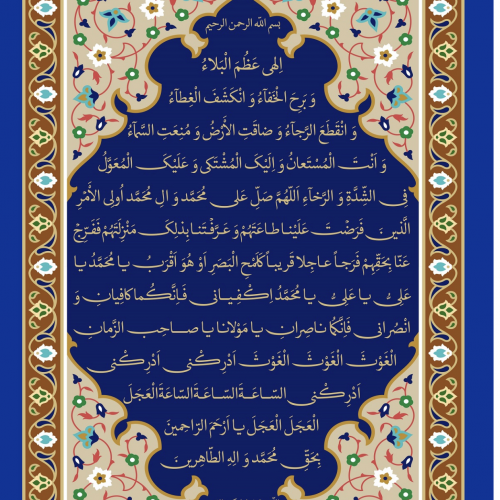 بسم الله الرحمن الرحیم
اِلهی عَظُمَ الْبَلاءُ
وَ بَرِحَ الْخَفاءُ وَ انْکَشَفَ الْغِطاءُ
وَ انْقَطَعَ الرَّجاءُ وَ ضاقَتِ الْاَرْضُ وَ مُنِعَتِ السَّماءُ
وَ اَنْتَ الْمُسْتَعانُ وَ اِلَیْکَ الْمُشْتَکی وَ عَلَیْکَ الْمُعَوَّلُ
فِی الشِّدَّةِ وَ الرَّخاءِ اَللّهُمَّ صَلِّ عَلی مُحَمَّد وَ الِ مُحَمَّد اُولِی الْاَمْرِ
الَّذینَ فَرَضْتَ عَلَیْنا طاعَتَهُمْ وَ عَرَّفْتَنا بِذلِکَ مَنْزِلَتَهُمْ فَفَرِّجْ
عَنّا بِحَقِّهِمْ فَرَجاً عاجِلا قَریباً کَلَمْحِ الْبَصَرِ اَوْ هُوَ اَقْرَبُ یا مُحَمَّدُ یا
عَلِیُّ یا عَلِیُّ یا مُحَمَّدُ اِکْفِیانی فَاِنَّکُما کافِیانِ وَ
انْصُرانی فَاِنَّکُما ناصِرانِ یا مَوْلانا یا صاحِبَ الزَّمانِ
الْغَوْثَ الْغَوْثَ الْغَوْثَ اَدْرِکْنی اَدْرِکْنی
اَدْرِکْنی السّاعَةَ السّاعَةَ السّاعَةَ الْعَجَلَ
الْعَجَلَ الْعَجَلَ یا اَرْحَمَ الرّاحِمینَ
بِحَقِّ مُحَمَّد وَ الِهِ الطّاهِرینَ